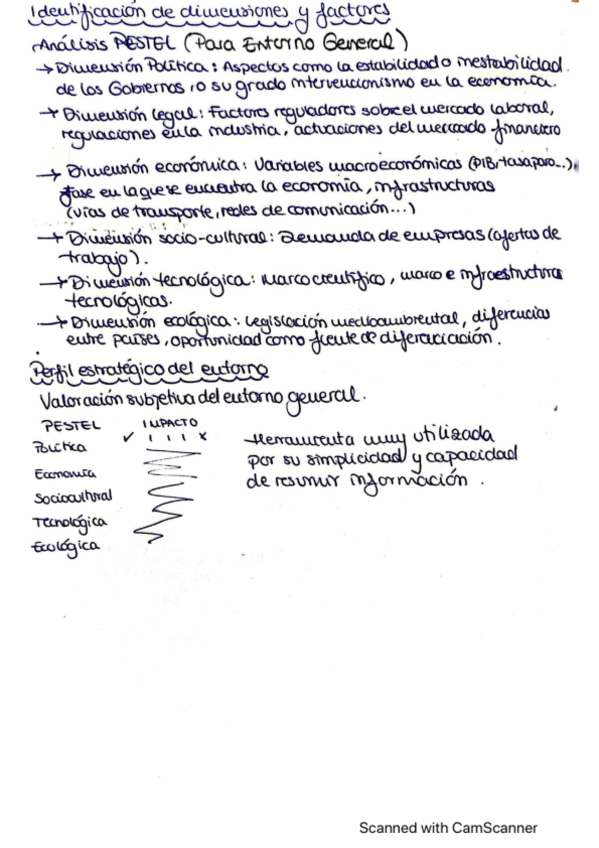 Identificación de dimensiones y factores
Análisis PESTEL (Para Entorno General)
→ Dimensión Política: Aspectos como la estabilidad o inestabilidad
de los Gobiernos, o su grado intervencionismo en la economía.
→ Dimensión legal: Factores reguladores sobre el mercado laboral,
regulaciones en la industria, actuaciones del mercado financiero
→ Dimensión económica: Variables macroeconómicas (PIB, tasa paro...),
fase en la que se encuentra la economía, infrastructuras
(vías de transporte, redes de comunicación...)
→ Dimensión socio-cultural: Demanda de empresas (ofertas de
trabajo).
→ Dimensión tecnológica: Marco científico, marco e infraestructuras
tecnológicas.
→ Dimensión ecológica: Legislación medioambiental, diferencias
entre países, oportunidad como fuente de diferenciación.
Perfil estratégico del entorno
Valoración subjetiva del entorno general.
PESTEL IMPACTO
✓ I I I x
Política
Economía
Sociocultural
Tecnológica
Ecológica
Herramienta muy utilizada
por su simplicidad y capacidad
de resumir información.
Scanned with CamScanner